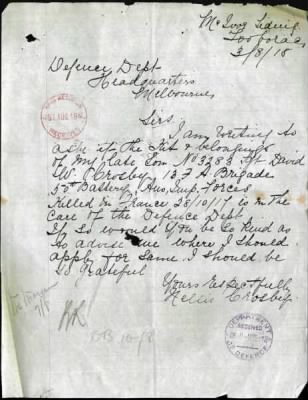 McIvor Siding
Tooborac
3/8/18
Defence Dept
Headquarters
Melbourne
Sirs.
I am writing to
ask if the Kit & belongings
of my late Son No 3283 Gr David
W. Crosby 13 F A Brigade
50 Battery, Aus, Imp. Forces
Killed in France 28/10/17 is in the
care of the Defence Dept
If So would you be so kind as
to advise me where I should
apply for same I should be
so grateful
Yours respectfully
Nellie Crosbey
7/8
DB 10-8
DEPARTMENT
RECEIVED
OF DEFENCE